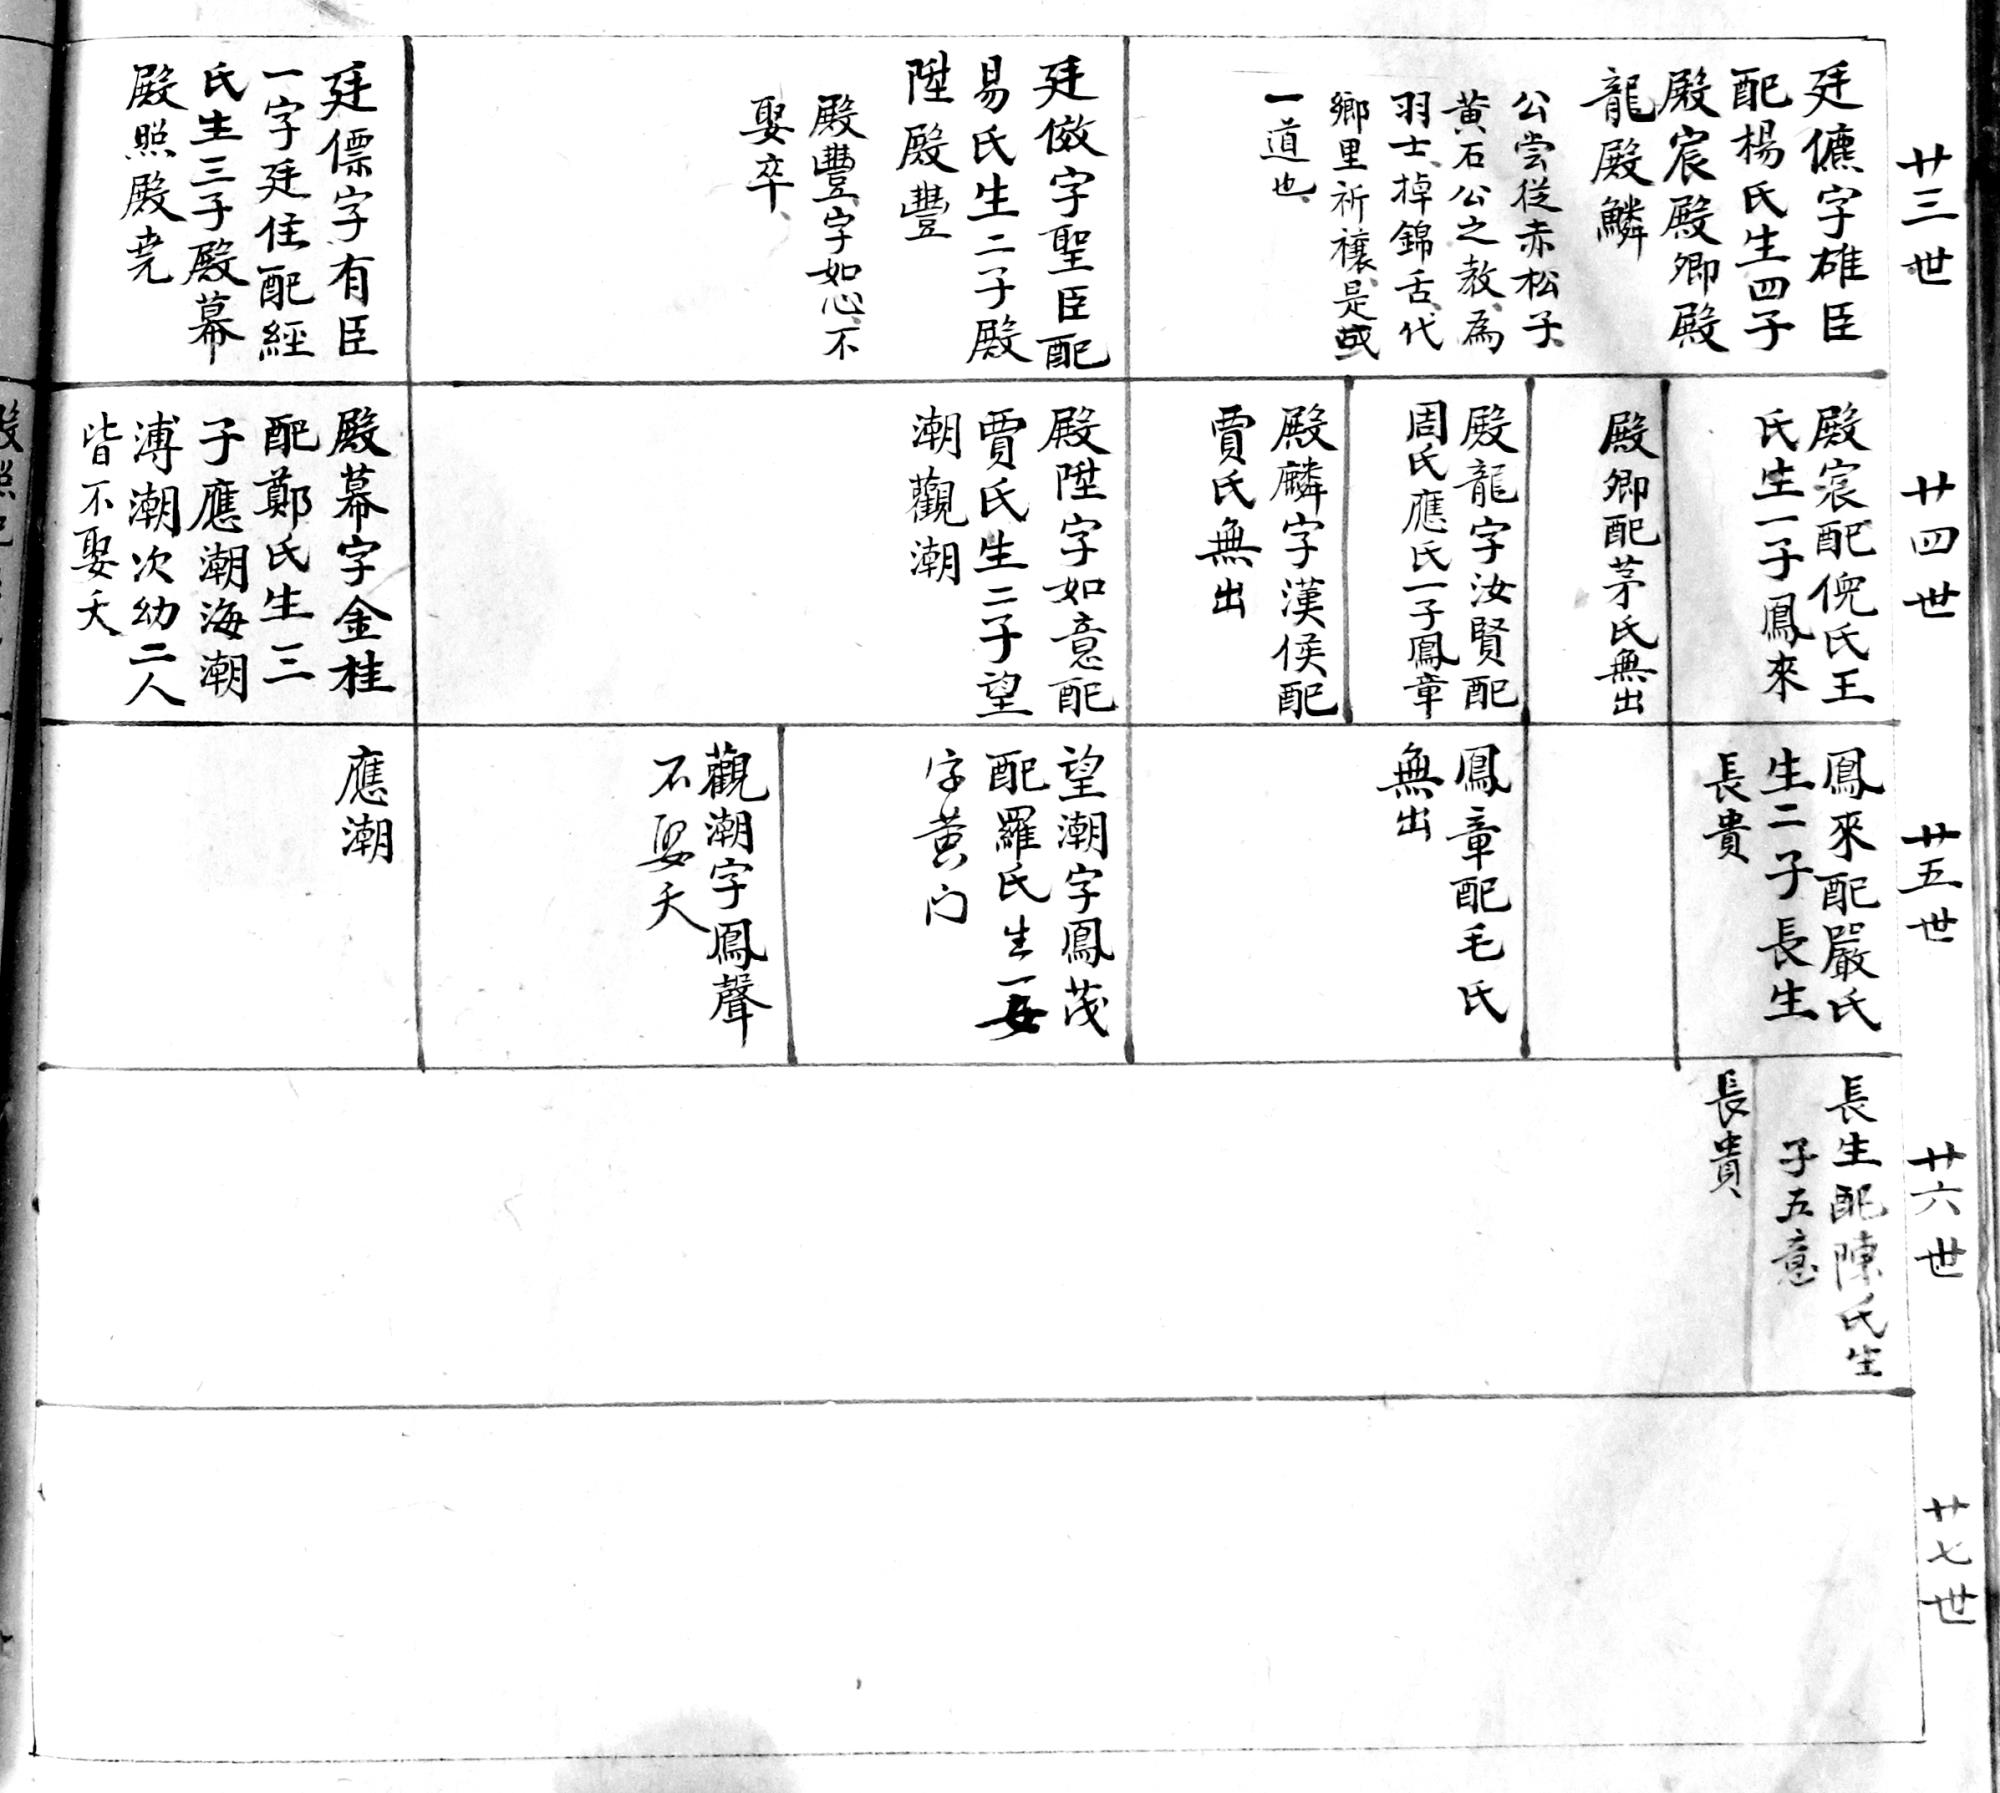 廿三世
廷儦字雄臣
配楊氏生四子
殿宸殿卿殿
龍殿鱗
公嘗從赤松子、
黄石公之教、為
羽士、掉錦舌、代
鄉里祈禳、是或
一道也、
廷傚字聖臣配
易氏生二子殿
陞殿豐
殿豐、字如心、不
娶卒、
廷僄字有臣
一字廷住配經
氏生三子殿幕
殿照殿尭
廿四世
殿宸配倪氏王
氏生一子鳳來
殿卿配茅氏無出
殿龍字汝賢配
周氏應氏一子鳳章
殿麟字漢侯配
賈氏無出
殿陞字如意配
賈氏生二子望
潮觀潮
殿幕字金桂
配鄭氏生三
子應潮海潮
溥潮次幼二人
皆不娶夭
廿五世
鳳來配嚴氏
生二子長生
長貴
鳳章配毛氏
無出
望潮字鳳茂
配羅氏生一女
字黄门
觀潮字鳳聲
不娶夭
應潮
廿六世
長生配陳氏生
子五意
長貴
廿七世